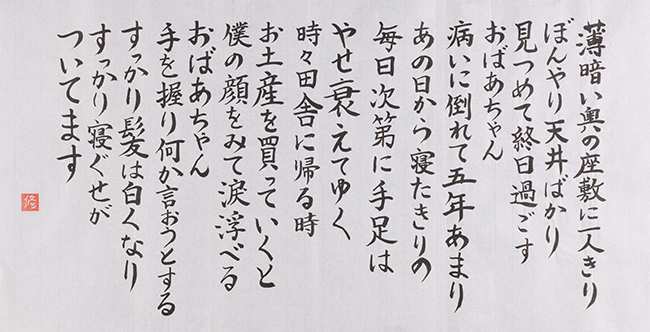 薄暗い奥の座敷に一人きり
ぼんやり天井ばかり
見つめて終日過ごす
おばあちゃん
病いに倒れて五年あまり
あの日から寝たきりの
毎日次第に手足は
やせ衰えてゆく
時々田舎に帰る時
お土産を買っていくと
僕の顔をみて涙浮べる
おばあちゃん
手を握り何か言おうとする
すっかり髪は白くなり
すっかり寝ぐせが
ついてます